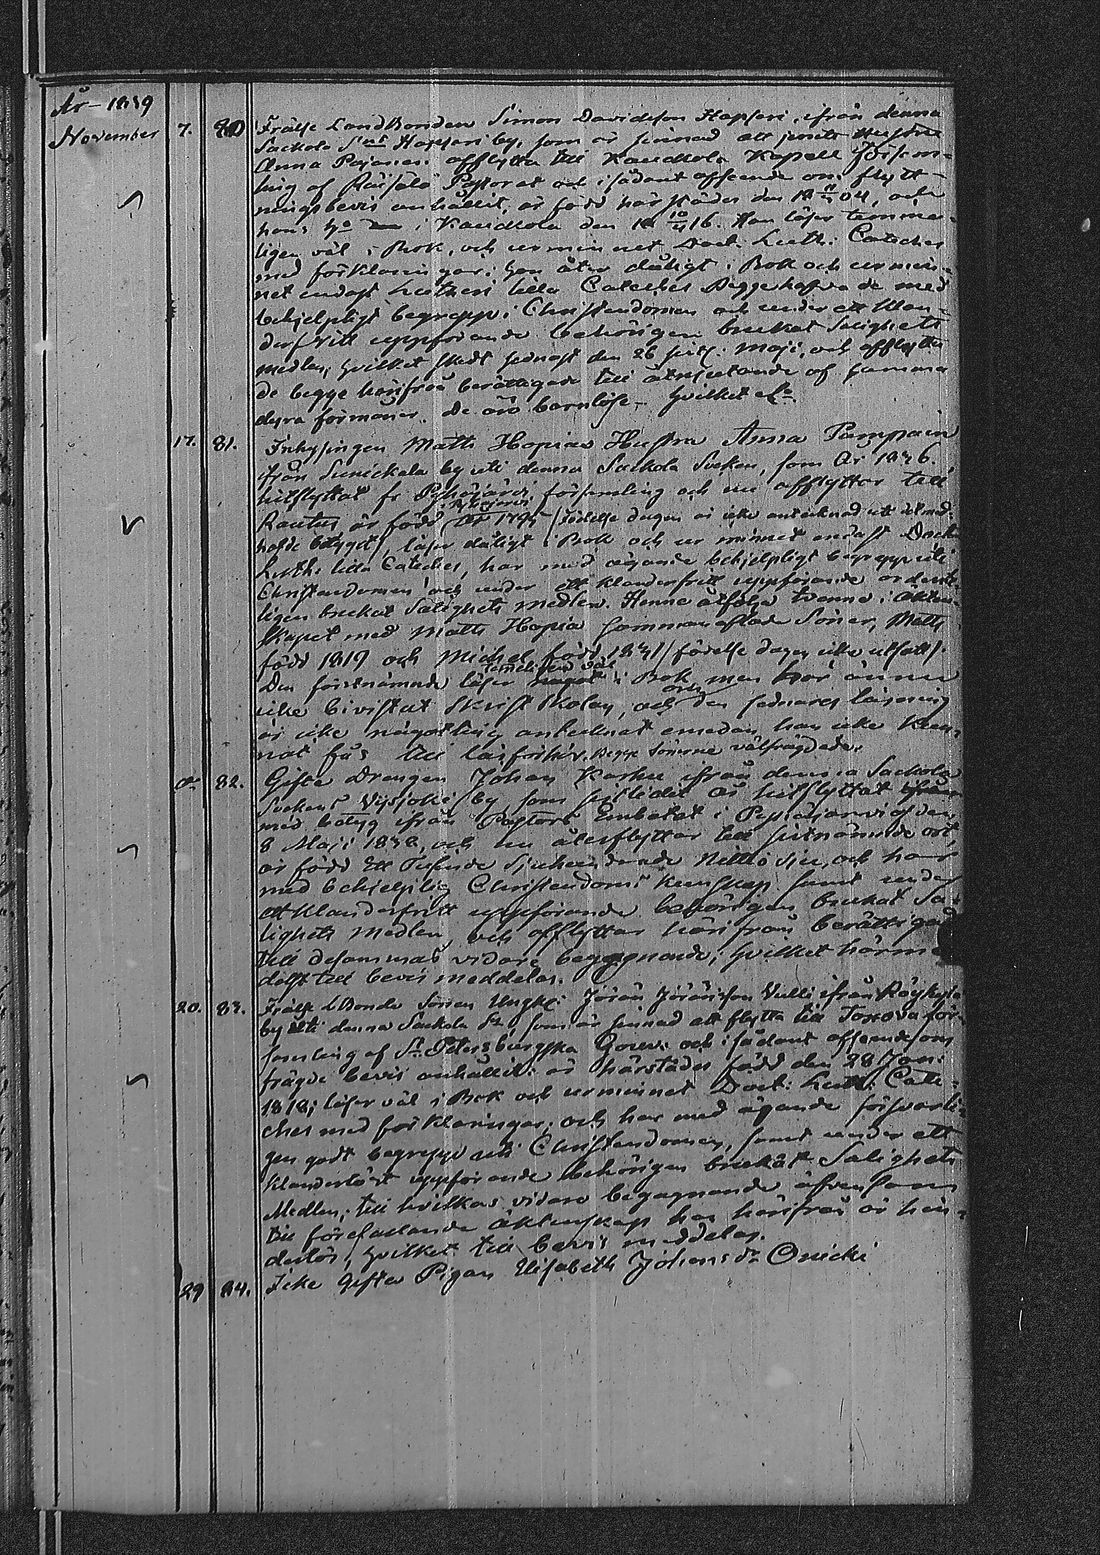 År 1839
November 7. 80 Frälse LandBonden Simon Davidsson Hapsen, ifrån denna
Sackola Sns by, som är sinnad att jemte Hustrun
Anna afflytta till Kaukola Kapell Församling
af Pastorat och i sådant afseende om flyttningsbevis
anhållit, är född härstädes den 18 04, och
hon i Kaukola den 18 10/4 16. Han läser temmeligen
väl i Bok, och ur minnet Doct. Luth: Cateches
med förklaringar; hon åter dåligt i Bok och ur minnet
endast Lutheri lilla Cateches Begge hafva de med
behjelpligt begrepp i Christendomen och under ett klanderfritt
uppförande behörigen brukat Salighets
medlen, hvilket skedt sednast den 26 Maji, och afflytta
de begge härifrån berättigade till åtnjutande af samma
dyra förmåner. De äro barnlöse. Hvilket
17. 81. Inhysingen Matts Hopias Hustru Anna Pamppain
ifrån Sunickala by uti denna Sackola Socken, som År 1836
hitflyttat fr Pyhäjärvi församling och nu afflyttar till
Rautus är född Pyhäjärvi År 1795 / födelse dagen är icke antecknad uti
betyget /, läser dåligt i Bok och ur minnet endast Doct
Luth: lilla Cateches, har med ägande behjelpligt begrepp uti
Christendomen och under ett klanderfritt uppförande ordentligen
brukat Salighets medlen. Henne åtfölja tvenne i äktenskapet
med Matts Hopia sammanaflade Söner, Matts
född 1819 och Michel född 1831 / födelse dagen icke utsatt /.
Den förstnämnde läser temmeligen väl i Bok, men har ännu
icke bivistat Skriftskolan, och om den sednares läsning
är icke någonting antecknat emedan han icke kunnat
fås till läsförhör. Begge Sönerne välfrägdade.
d. 82. Gifte Drängen Johan Karhu ifrån denna Sackola
Sockens Vysjoki by, som sistlidet År hitflyttat
med betyg ifrån Pastors Embetet i Pyhäjärvi af den
8 Maji 1838, och nu återflyttar till sistnämnde ort,
är född Ett Tusende Sjuhundrade Nittiosju, och har
med behjelplig Christendoms kunskap samt under
ett klanderfritt uppförande behörigen brukat Salighets
medlen, och afflyttar härifrån berättigad
till desammas vidare begagnande, hvilket härmedelst
till bevis meddelas.
20. 83. Frälse LBonde Sonen Ungkl: Jöran Jöransson Vulli ifrån
by uti denna Sackola Sn, som är sinnad att flytta till Toxova församling
af St Petersburgska Gouv: och i sådant afseende om
frägde bevis anhållit: är härstädes född den 28 Jan:
1818; läser väl i Bok och ur minnet Doct: Luth: Cateches
med förklaringar; och har med ägande försvarligen
godt begrepp uti Christendomen, samt under ett
klanderlöst uppförande behörigen brukat Salighets
Medlen; till hvilkas vidare begagnande äfvensom
till förefallande äktenskap han härifrån är hinderlös,
hvilket till bevis meddelas.
29 84. Icke Gifta Pigan Elisabeth Johansdr Onicki